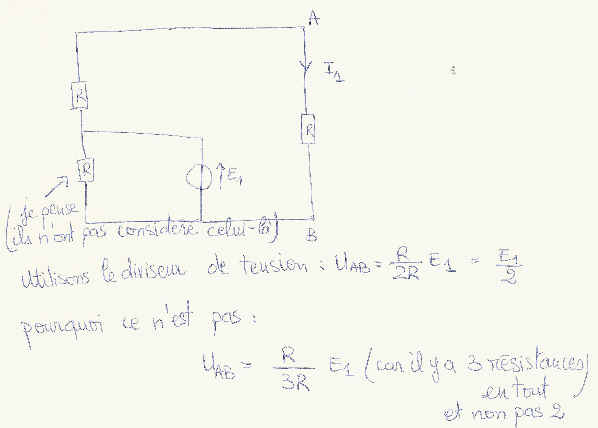 A
I1
R
R
R
E1
(je pense
ils n'ont pas considéré celui-là)
B
Utilisons le diviseur de tension : UAB = R/2R E1 = E1/2
pourquoi ce n'est pas :
UAB = R/3R E1 (car il y a 3 résistances)
en tout
et non pas 2